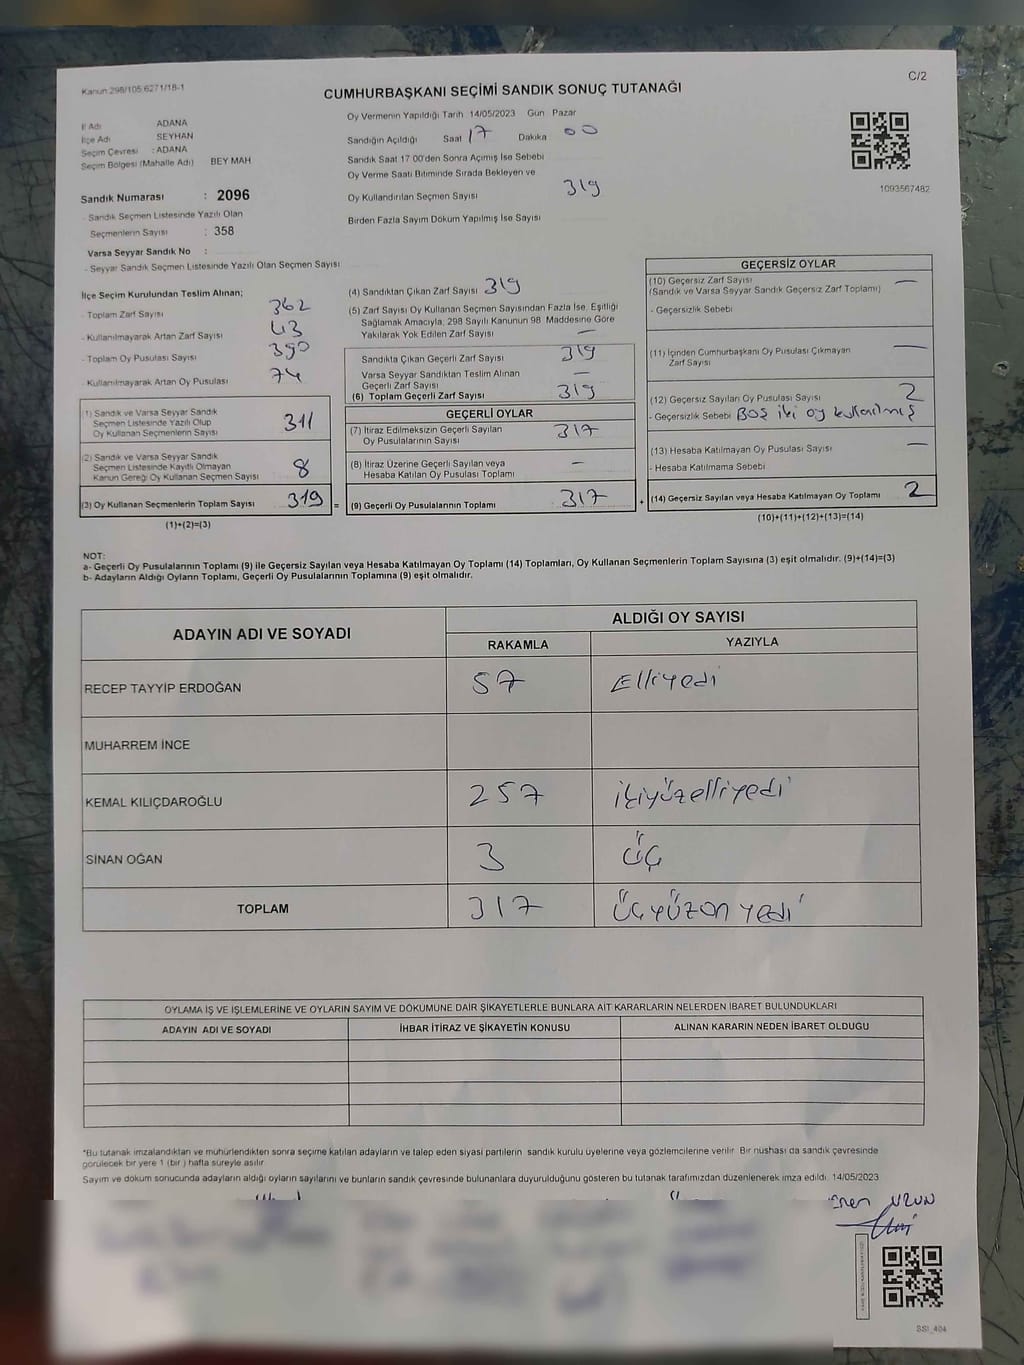 Kanun 298/105 6271/18-1
C/2
CUMHURBAŞKANI SEÇİMİ SANDIK SONUÇ TUTANAĞI
İl Adı ADANA
İlçe Adı SEYHAN
Seçim Çevresi : ADANA
Seçim Bölgesi (Mahalle Adı) BEY MAH
Sandık Numarası : 2096
- Sandık Seçmen Listesinde Yazılı Olan
Seçmenlerin Sayısı : 358
Varsa Seyyar Sandık No :
- Seyyar Sandık Seçmen Listesinde Yazılı Olan Seçmen Sayısı
Oy Vermenin Yapıldığı Tarih 14/05/2023 Gün Pazar
Sandığın Açıldığı Saat 17 Dakika 00
Sandık Saat 17 00'den Sonra Açımış İse Sebebi
Oy Verme Saati Bitiminde Sırada Bekleyen ve
Oy Kullandırılan Seçmen Sayısı 319
Birden Fazla Sayım Döküm Yapılmış İse Sayısı
1093567482
İlçe Seçim Kurulundan Teslim Alınan;
- Toplam Zarf Sayısı 362
- Kullanılmayarak Artan Zarf Sayısı 43
- Toplam Oy Pusulası Sayısı 390
- Kullanılmayarak Artan Oy Pusulası 74
(1) Sandık ve Varsa Seyyar Sandık
Seçmen Listesinde Yazılı Olup
Oy Kullanan Seçmenlerin Sayısı 311
(2) Sandık ve Varsa Seyyar Sandık
Seçmen Listesinde Kayıtlı Olmayan
Kanun Gereği Oy Kullanan Seçmen Sayısı 8
(3) Oy Kullanan Seçmenlerin Toplam Sayısı 319 =
(1)+(2)=(3)
(4) Sandıktan Çıkan Zarf Sayısı 319
(5) Zarf Sayısı Oy Kullanan Seçmen Sayısından Fazla İse, Eşitliği
Sağlamak Amacıyla, 298 Sayılı Kanunun 98. Maddesine Göre
Yakılarak Yok Edilen Zarf Sayısı —
Sandıkta Çıkan Geçerli Zarf Sayısı 319
Varsa Seyyar Sandıktan Teslim Alınan
Geçerli Zarf Sayısı —
(6) Toplam Geçerli Zarf Sayısı 319
GEÇERLİ OYLAR
(7) İtiraz Edilmeksizin Geçerli Sayılan
Oy Pusulalarının Sayısı 317
(8) İtiraz Üzerine Geçerli Sayılan veya
Hesaba Katılan Oy Pusulası Toplamı —
(9) Geçerli Oy Pusulalarının Toplamı 317 +
GEÇERSİZ OYLAR
(10) Geçersiz Zarf Sayısı
(Sandık ve Varsa Seyyar Sandık Geçersiz Zarf Toplamı) —
- Geçersizlik Sebebi
(11) İçinden Cumhurbaşkanı Oy Pusulası Çıkmayan
Zarf Sayısı —
(12) Geçersiz Sayılan Oy Pusulası Sayısı 2
- Geçersizlik Sebebi Boş iki oy kullanılmış
(13) Hesaba Katılmayan Oy Pusulası Sayısı —
- Hesaba Katılmama Sebebi
(14) Geçersiz Sayılan veya Hesaba Katılmayan Oy Toplamı 2
(10)+(11)+(12)+(13)=(14)
NOT:
a- Geçerli Oy Pusulalarının Toplamı (9) ile Geçersiz Sayılan veya Hesaba Katılmayan Oy Toplamı (14) Toplamları, Oy Kullanan Seçmenlerin Toplam Sayısına (3) eşit olmalıdır. (9)+(14)=(3)
b- Adayların Aldığı Oyların Toplamı, Geçerli Oy Pusulalarının Toplamına (9) eşit olmalıdır.
ADAYIN ADI VE SOYADI
ALDIĞI OY SAYISI
RAKAMLA YAZIYLA
RECEP TAYYİP ERDOĞAN 57 Elliyedi
MUHARREM İNCE
KEMAL KILIÇDAROĞLU 257 ikiyüzelliyedi
SİNAN OĞAN 3 üç
TOPLAM 317 üçyüzonyedi
OYLAMA İŞ VE İŞLEMLERİNE VE OYLARIN SAYIM VE DÖKÜMÜNE DAİR ŞİKAYETLERLE BUNLARA AİT KARARLARIN NELERDEN İBARET BULUNDUKLARI
ADAYIN ADI VE SOYADI İHBAR İTİRAZ VE ŞİKAYETİN KONUSU ALINAN KARARIN NEDEN İBARET OLDUĞU
*Bu tutanak imzalandıktan ve mühürlendikten sonra seçime katılan adayların ve talep eden siyasi partilerin sandık kurulu üyelerine veya gözlemcilerine verilir. Bir nüshası da sandık çevresinde
görülecek bir yere 1 (bir ) hafta süreyle asılır
Sayım ve döküm sonucunda adayların aldığı oyların sayılarını ve bunların sandık çevresinde bulunanlara duyurulduğunu gösteren bu tutanak tarafımızdan düzenlenerek imza edildi. 14/05/2023
UZUN
SSI_404